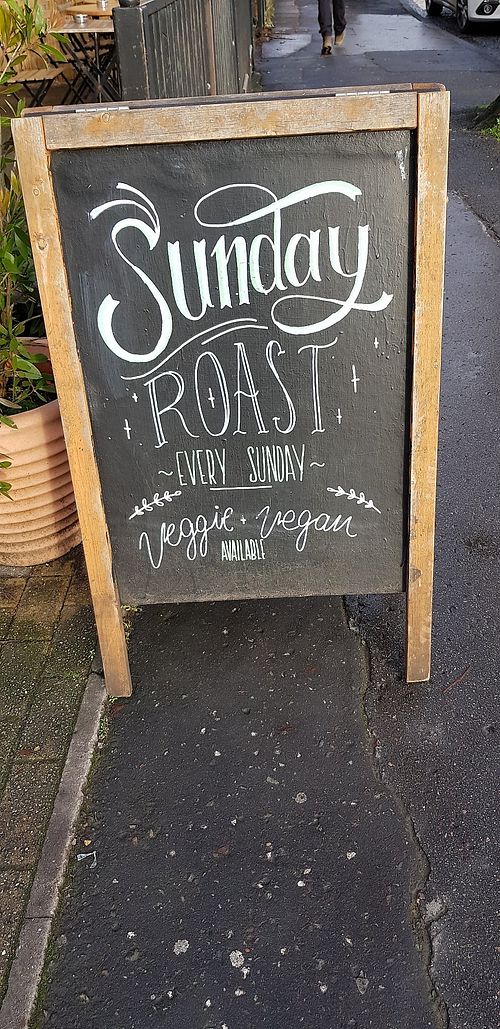 Sunday
ROAST
~EVERY SUNDAY~
veggie + vegan
AVAILABLE